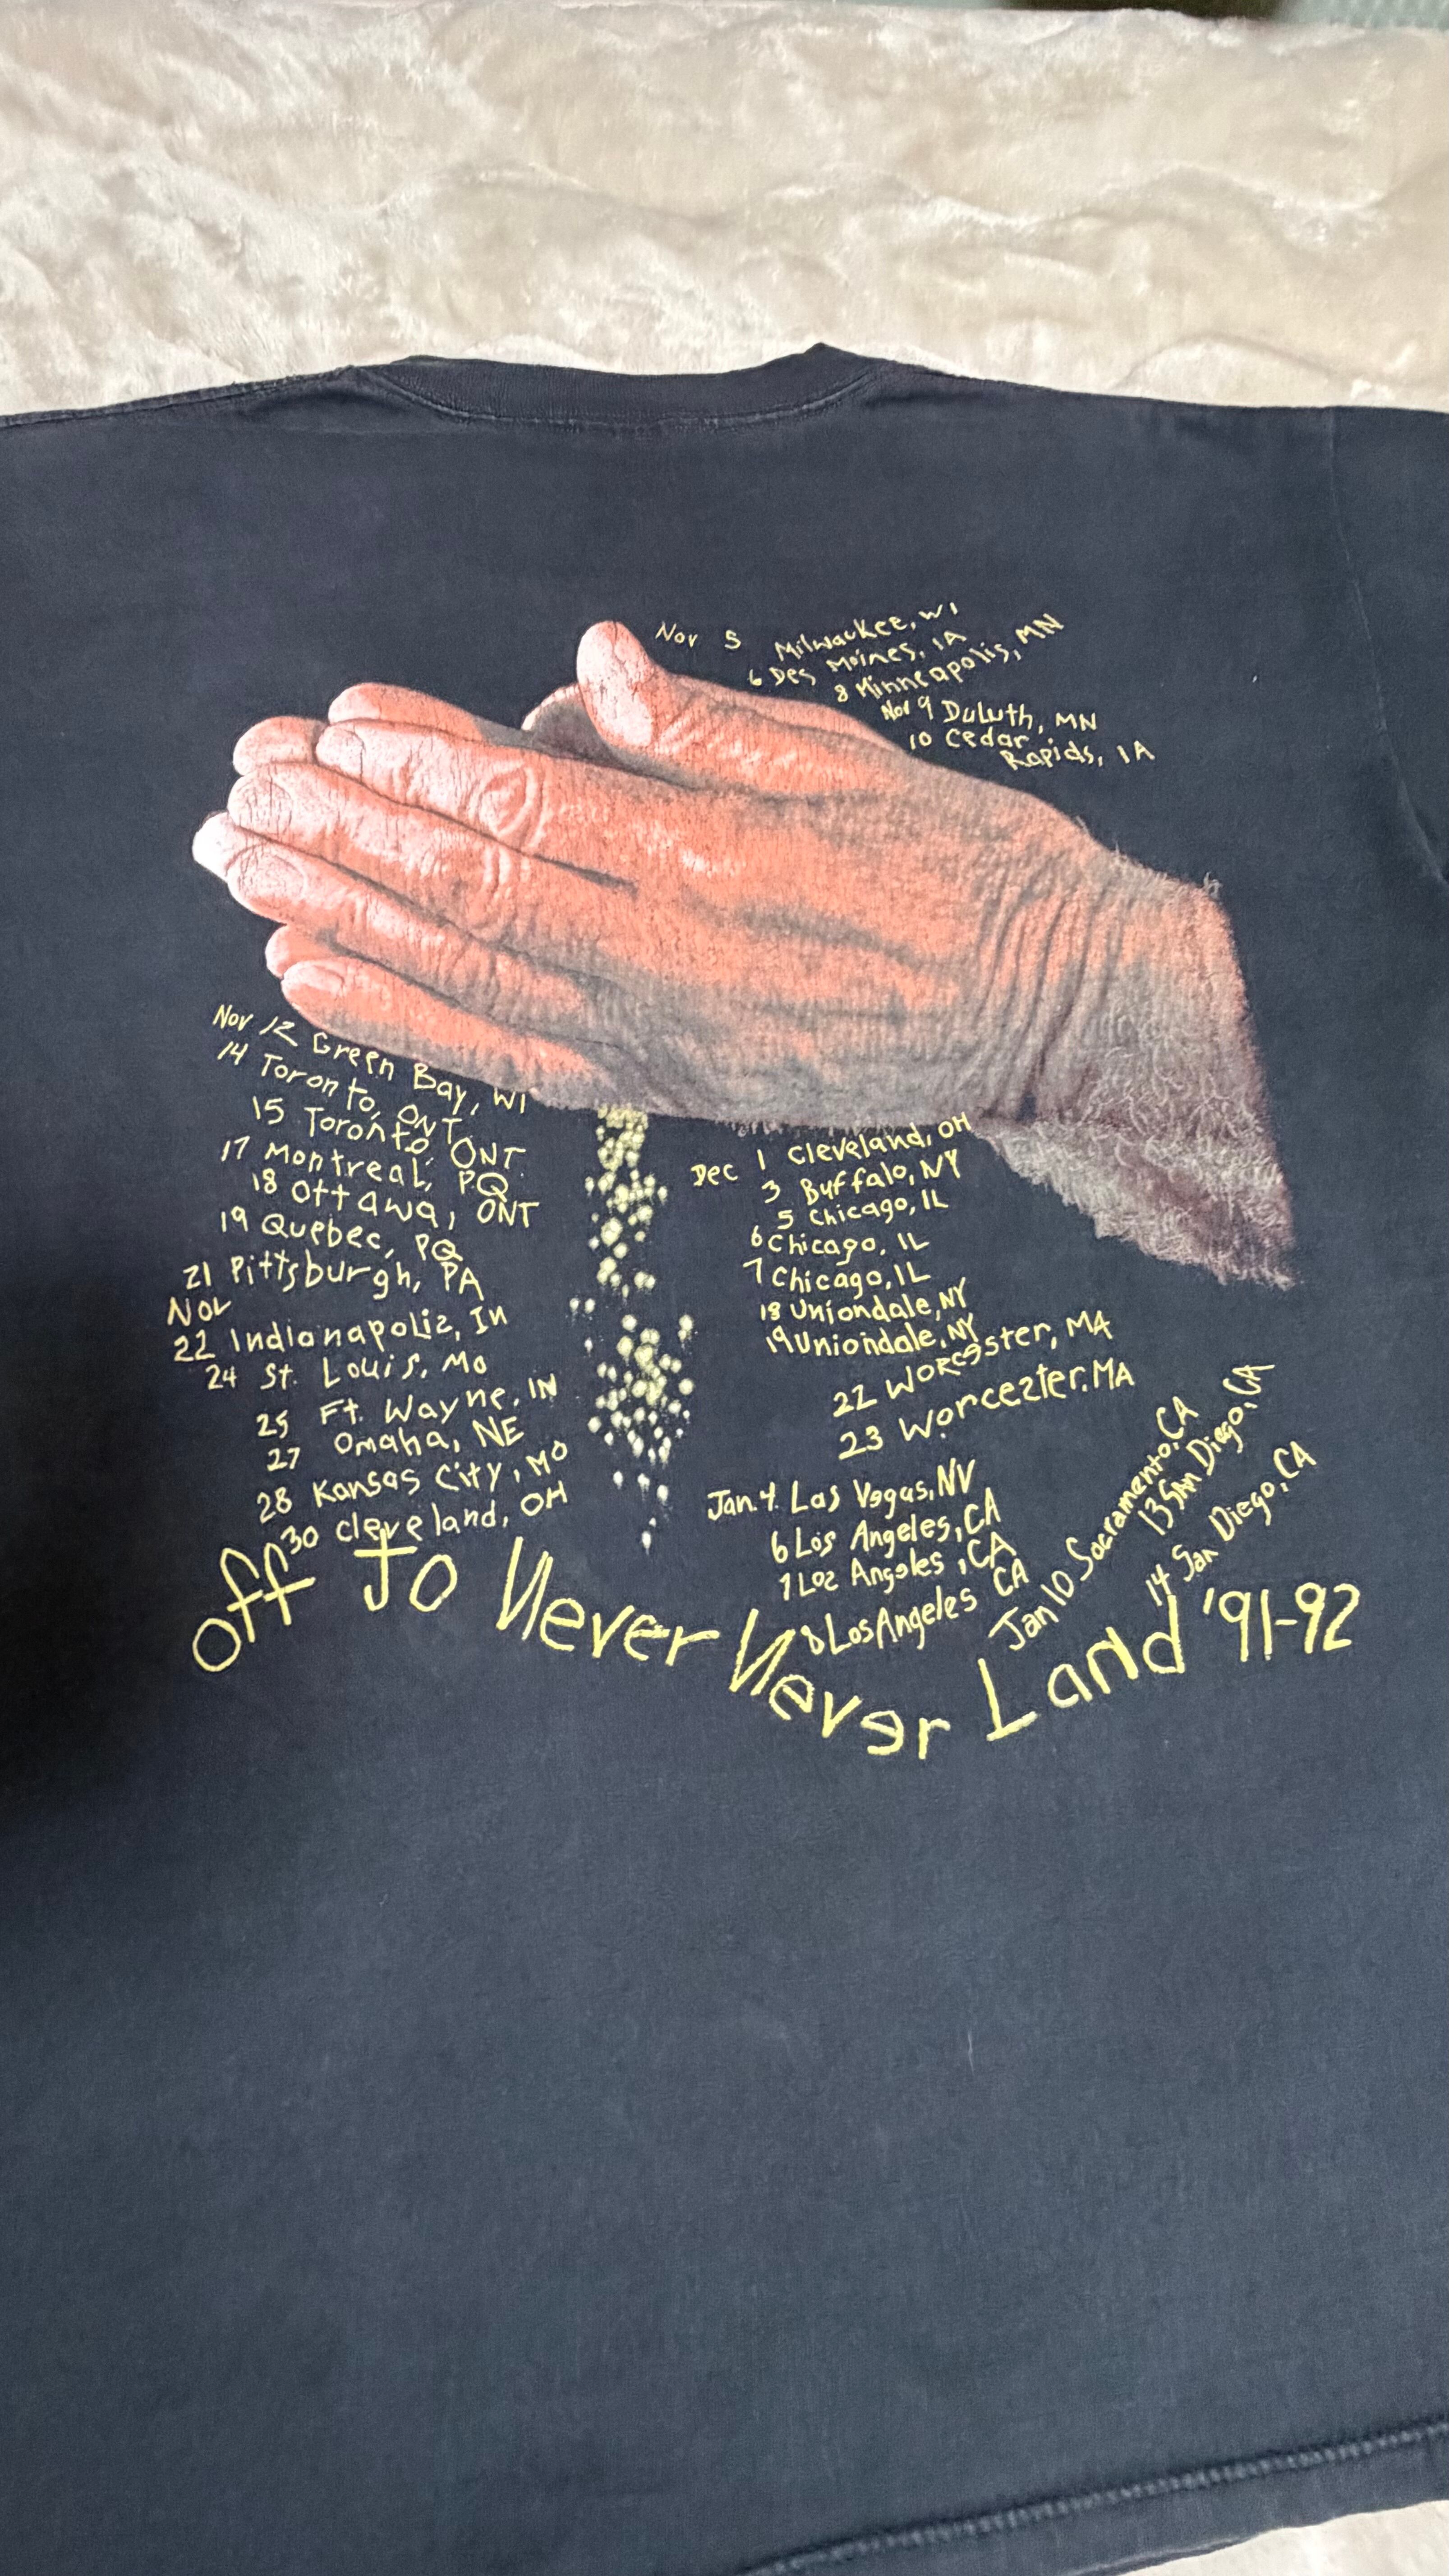 Nov 5 Milwaukee, WI
6 Des Moines, IA
8 Minneapolis, MN
Nov 9 Duluth, MN
10 Cedar
Rapids, IA
Nov 12 Green Bay, WI
14 Toronto, ONT
15 Toronto, ONT.
17 Montreal, PQ
18 Ottawa, ONT
19 Quebec, PQ
21 Pittsburgh, PA
Nov
22 Indianapolis, In
24 St. Louis, Mo
25 Ft. Wayne, IN
27 Omaha, NE
28 Kansas City, MO
30 Cleveland, OH
Dec 1 Cleveland, OH
3 Buffalo, NY
5 Chicago, IL
6 Chicago, IL
7 Chicago, IL
18 Uniondale, NY
19 Uniondale, NY
22 Worcester, MA
23 Worcester, MA
Jan. 4. Las Vegas, NV
6 Los Angeles, CA
7 Los Angeles, CA
8 Los Angeles CA
Jan 10 Sacramento, CA
13 San Diego, CA
14 San Diego, CA
off To Never Never Land '91-92